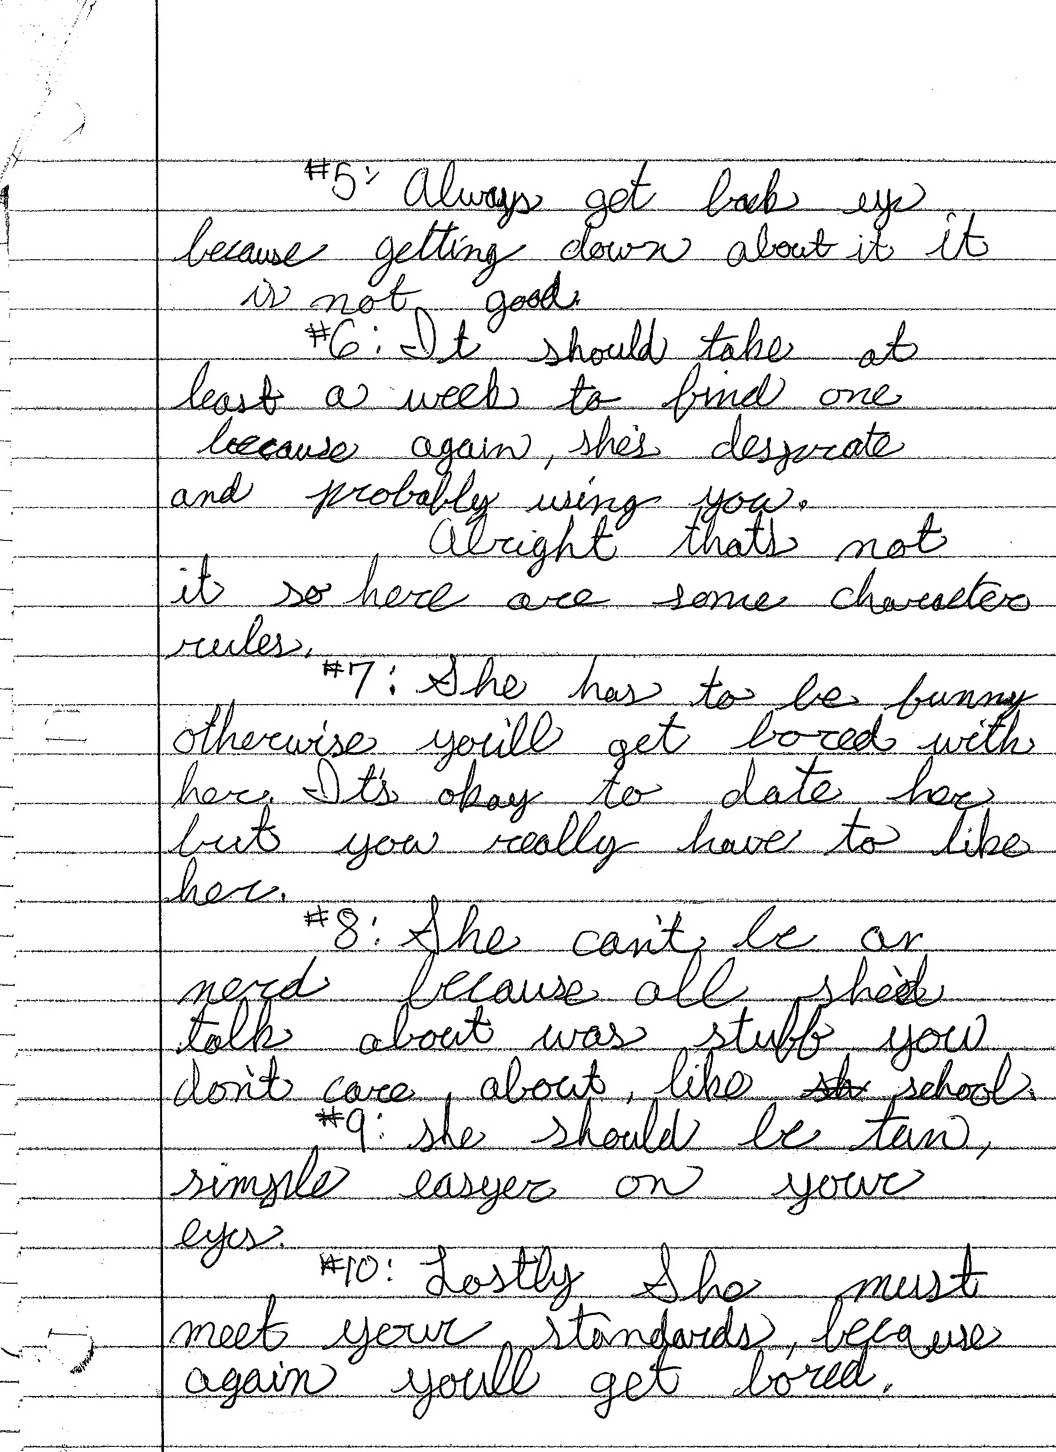 #5: Always get back up
because getting down about it it
is not good.
#6: It should take at
least a week to find one
because again, she's desprate
and probably using you.
Alright thats not
it so here are some character
rules.
#7: She has to be funny
otherwise you'll get bored with
her. It's okay to date her
but you really have to like
her.
#8: She can't be a
nerd because all she'd
talk about was stuff you
don't care about, like school.
#9: she should be tan,
simple easyer on your
eyes.
#10: Lastly She must
meet your standards, because
again you'll get bored.